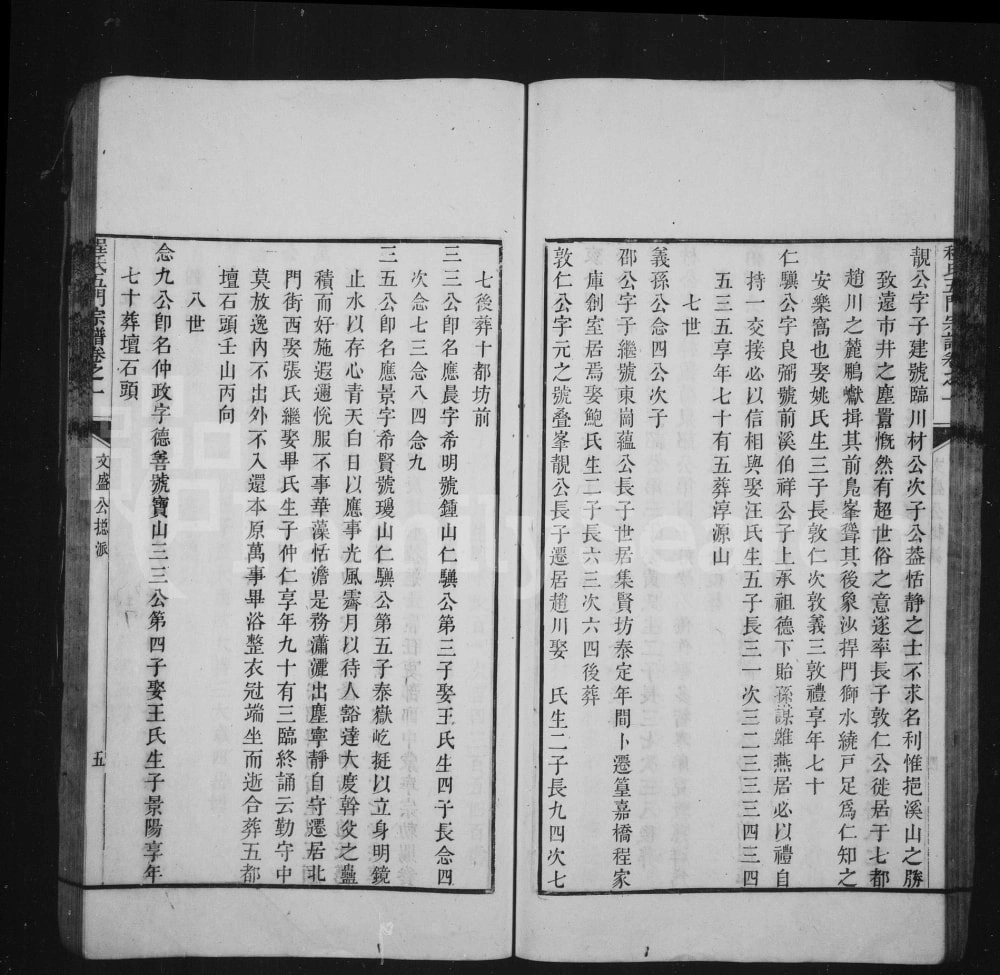 靚公字子建號臨川材公次子公葢恬靜之士不求名利惟挹溪山之勝
致遠市井之塵囂慨然有超世俗之意遂率長子敦仁公徙居于七都
趙川之麓鵬獻揖其前鳧峯聳其後象沙捍門獅水繞戸足爲仁知之
安樂窩也娶姚氏生三子長敦仁次敦義三敦禮享年七十
仁驥公字良弼號前溪伯祥公子上承祖德下貽孫謀雖燕居必以禮自
持一交接必以信相與娶汪氏生五子長三一次三二三三三四三
五三五享年七十有五葬淳源山
七世
義孫公念四公次子
邵公字子繼號東崗蘊公長子世居集賢坊泰定年間卜遷篁嘉橋程家
庫創室居焉娶鮑氏生二子長六三次六四後葬
敦仁公字元之號叠峯靚公長子遷居趙川娶 氏生二子長九四次七
七後葬十都坊前
三三公卽名應晨字希明號鍾山仁驥公第三子娶王氏生四子長念四
次念七三念八四念九
三五公卽名應景字希賢號璦山仁驥公第五子泰嶽屹挺以立身明鏡
止水以存心青天白日以應事光風霽月以待人豁達大度幹攵之蠱
積而好施遐邇悅服不事華藻恬澹是務瀟灑出塵寧靜自守遷居北
門街西娶張氏繼娶畢氏生子仲仁享年九十有三臨終誦云勤守中
莫放逸內不出外不入還本原萬事畢浴整衣冠端坐而逝合葬五都
壇石頭壬山丙向
八世
念九公卽名仲政字德善號寶山三三公第四子娶王氏生子景陽享年
七十葬壇石頭
程氏五門宗譜卷之一 文盛公摠派 五